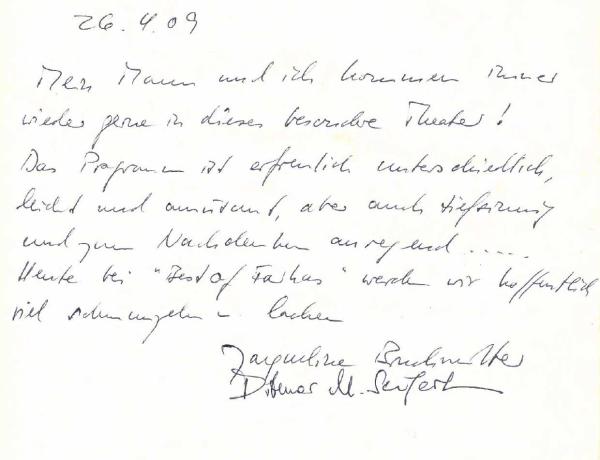 26.4.09
Mein Mann und ich kommen immer
wieder gerne in dieses besondere Theater!
Das Programm ist erfreulich unterschiedlich,
leicht und amüsant, aber auch tiefsinnig
und zum Nachdenken anregend.....
Heute bei "Best of Farkas" werden wir hoffentlich
viel schmunzeln u. lachen
Jacqueline
Ditmar M. Seifert